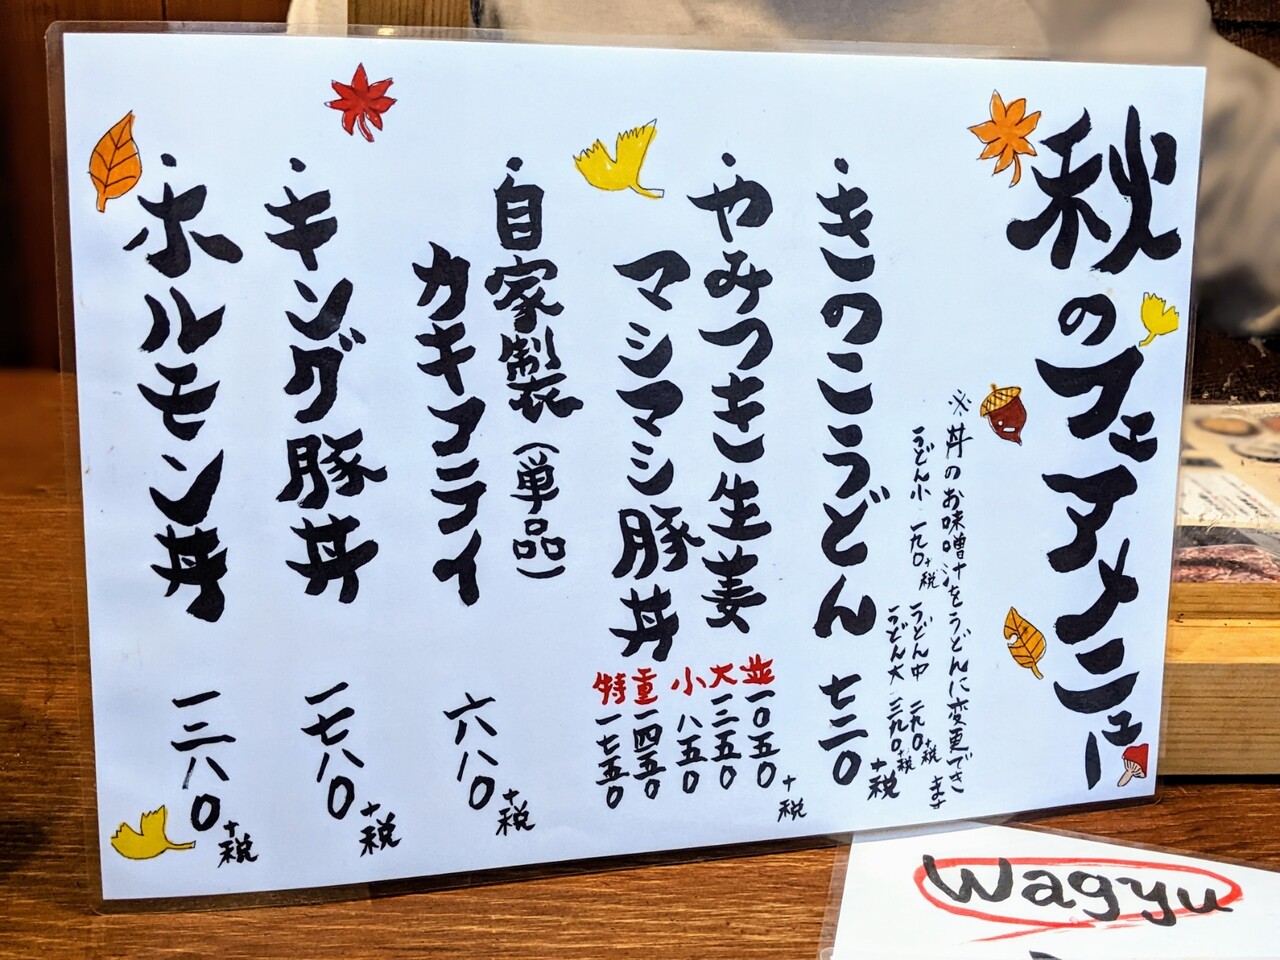 秋のフェアメニュー
※丼のお味噌汁をうどんに変更できます
うどん小 一九〇+税
うどん中 二九〇+税
うどん大 三九〇+税
・きのこうどん 七二〇+税
・やみつき生姜
マシマシ豚丼
並 一〇五〇
大 一二五〇
小 八五〇
重 一四五〇
特 一七五〇
+税
・自家製(単品)
カキフライ 六八〇+税
・キング豚丼 一七八〇+税
・ホルモン丼 一三八〇+税
Wagyu